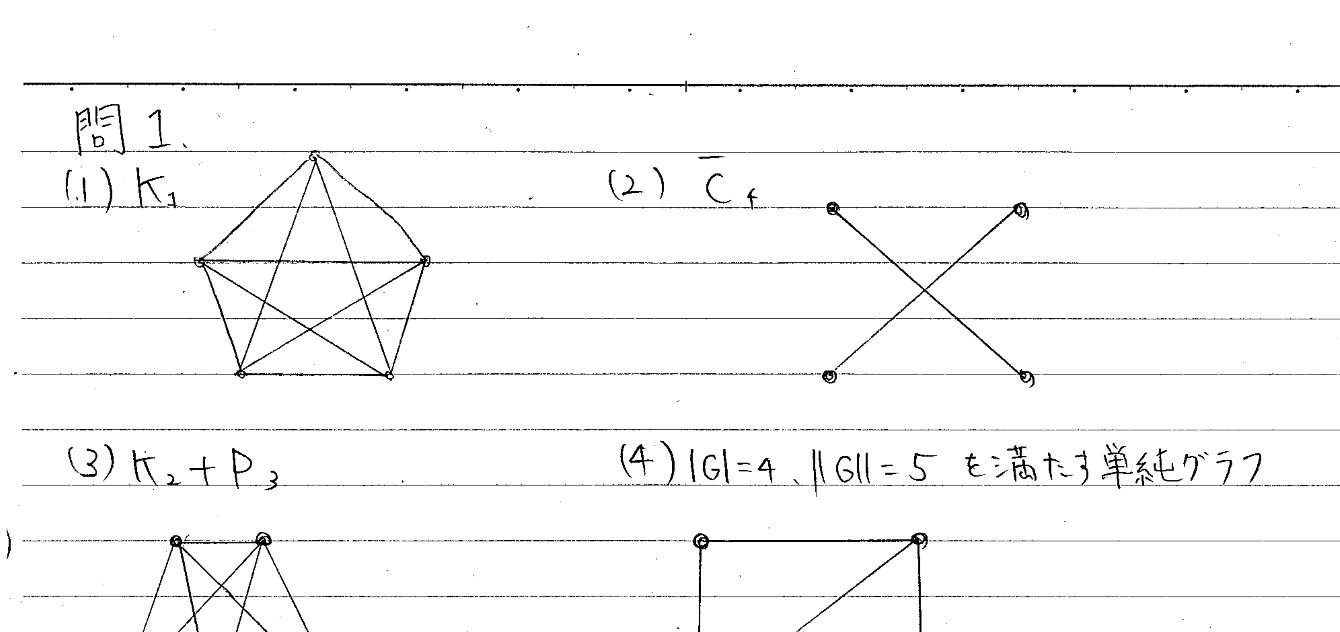 問 1.
(1) K₅
(2) C̄₄
(3) K₂ + P₃
(4) |G|=4、||G||=5 を満たす単純グラフ
)